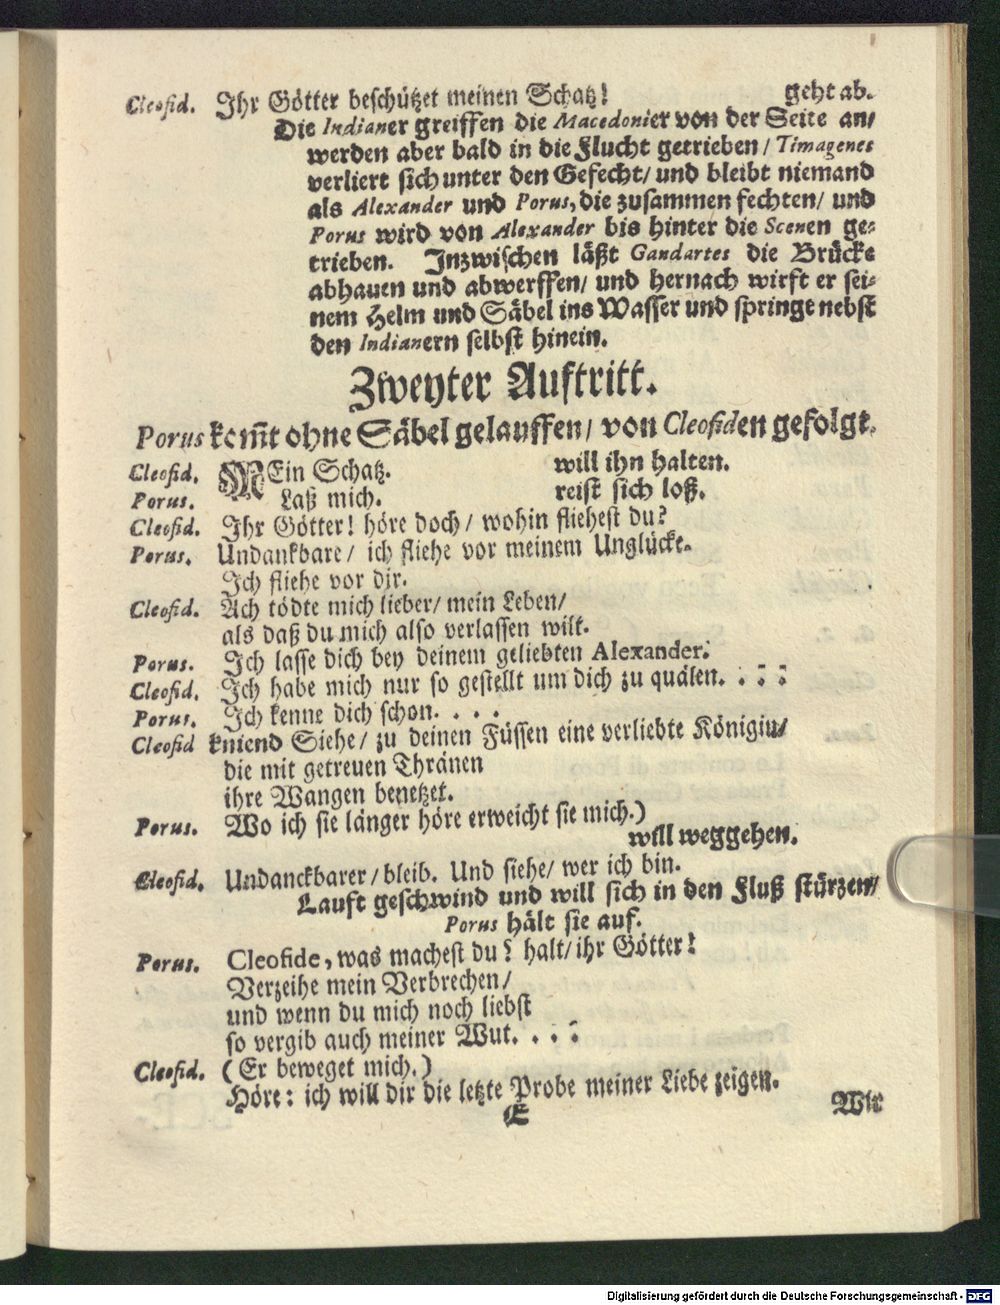 Cleofid. Ihr Götter beschützet meinen Schatz! geht ab.
Die Indianer greiffen die Macedonier von der Seite an/
werden aber bald in die Flucht getrieben/ Timagenes
verliert sich unter den Gefecht/ und bleibt niemand
als Alexander und Porus, die zusammen fechten/ und
Porus wird von Alexander bis hinter die Scenen ge-
trieben. Inzwischen läßt Gandartes die Brücke
abhauen und abwerffen/ und hernach wirft er sei-
nem Helm und Säbel ins Wasser und springt nebst
den Indianern selbst hinein.
Zweyter Auftritt.
Porus kom̃t ohne Säbel gelauffen/ von Cleofiden gefolgt.
Cleofid. MEin Schatz. will ihn halten.
Porus. Laß mich. reist sich loß.
Cleofid. Ihr Götter! höre doch/ wohin fliehest du?
Porus. Undankbare/ ich fliehe vor meinem Unglücke.
Ich fliehe vor dir.
Cleofid. Ach tödte mich lieber/ mein Leben/
als daß du mich also verlassen wilt.
Porus. Ich lasse dich bey deinem geliebten Alexander.
Cleofid. Ich habe mich nur so gestellt um dich zu quälen. . . .
Porus. Ich kenne dich schon. . . .
Cleofid kniend Siehe/ zu deinen Füssen eine verliebte Königin/
die mit getreuen Thränen
ihre Wangen benetzet.
Porus. Wo ich sie länger höre erweicht sie mich.)
will weggehen.
Cleofid. Undanckbarer/ bleib. Und siehe/ wer ich bin.
Lauft geschwind und will sich in den Fluß stürzen/
Porus hält sie auf.
Porus. Cleofide, was machest du? halt/ ihr Götter!
Verzeihe mein Verbrechen/
und wenn du mich noch liebst
so vergib auch meiner Wut. . . .
Cleofid. (Er beweget mich.)
Höre: ich will dir die letzte Probe meiner Liebe zeigen.
E Wir
Digitalisierung gefördert durch die Deutsche Forschungsgemeinschaft - DFG